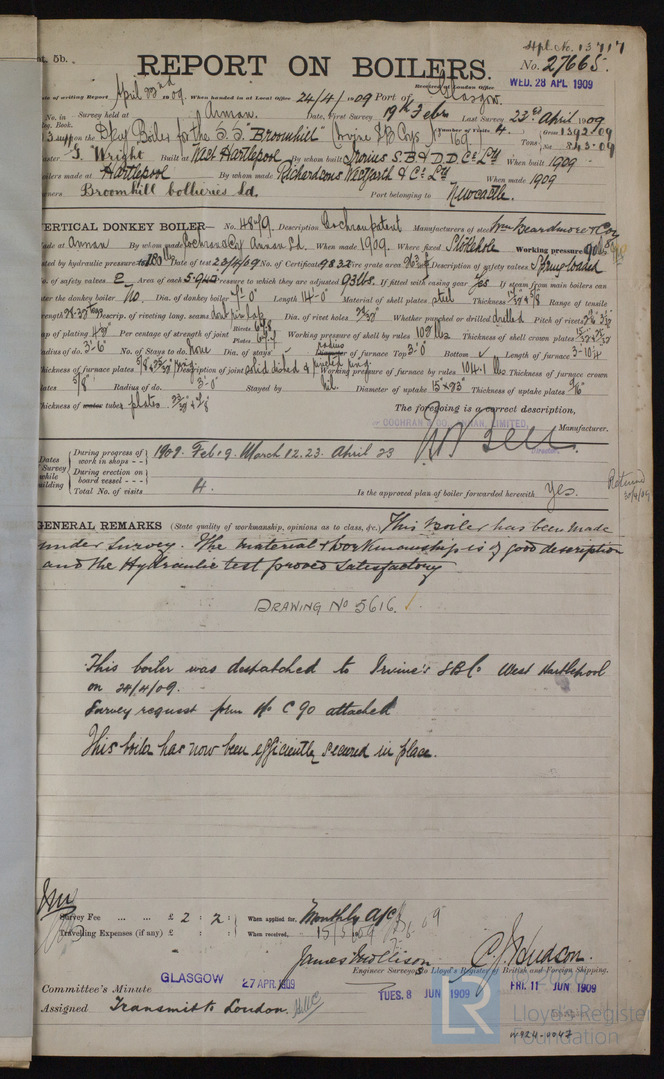 pt. 5b.
Hpl. No. 13717
REPORT ON BOILERS.
No. 27665.
Received at London Office WED. 28 APL 1909
Date of writing Report April 23rd 1909. When handed in at Local Office 24/4/1909 Port of Glasgow.
No. in Survey held at Annan. Date, First Survey 19th Feb Last Survey 23rd April 1909
Reg. Book. (Number of Visits 4.)
on the Dkey Boiler for the S.S. "Broomhill" (Irvine SB Coys No 169) Tons Gross 1392.09 Net 845.09
Master J. Wright Built at West Hartlepool By whom built Irvines S.B & D.D. Co. Ltd When built 1909
Boilers made at Hartlepool By whom made Richardsons Westgarth & Co. Ltd When made 1909
Owners Broomhill Collieries Ld. Port belonging to Newcastle.
VERTICAL DONKEY BOILER— No. 4879 Description Cochran patent Manufacturers of steel Wm Beardmore & Coy
Made at Annan By whom made Cochran & Coy Annan Ld. When made 1909. Where fixed Stokehole Working pressure 90 lbs
tested by hydraulic pressure to 180 lbs Date of test 23/4/09 No. of Certificate 9832 Fire grate area Description of safety valves Spring loaded
No. of safety valves 2 Area of each Pressure to which they are adjusted 93 lbs. If fitted with easing gear Yes If steam from main boilers can
enter the donkey boiler No Dia. of donkey boiler 7'-0" Length 14'-0" Material of shell plates steel Thickness Range of tensile
strength Descrip. of riveting long. seams Dia. of rivet holes Whether punched or drilled drilled Pitch of rivets
Lap of plating Per centage of strength of joint Rivets Plates Working pressure of shell by rules Thickness of shell crown plates
Radius of do. 3'-6" No. of Stays to do. None Dia. of stays radius of furnace Top 3'-0" Bottom ✓ Length of furnace
Thickness of furnace plates Description of joint Working pressure of furnace by rules 104.1 lbs Thickness of furnace crown
plates 5/8" Radius of do. 3'-0" Stayed by Nil. Diameter of uptake Thickness of uptake plates 9/16"
Thickness of water tubes plates
The foregoing is a correct description,
COCHRAN & CO. ANNAN, LIMITED, Manufacturer.
Director.
Dates of Survey while building
During progress of work in shops - - 1909. Feb 19. March 12. 23. April 23
During erection on board vessel - - -
Total No. of visits 4. Is the approved plan of boiler forwarded herewith Yes.
Retured 30/4/09
GENERAL REMARKS (State quality of workmanship, opinions as to class, &c.) This boiler has been made
under survey. The material & workmanship is of good description
and the Hydraulic test proved satisfactory
DRAWING No 5616.
This boiler was despatched to Irvine's SB Co West Hartlepool
on 24/4/09.
Survey request form No C 90 attached
This boiler has now been efficiently secured in place.
Survey Fee ... ... £ 2 : 2 : When applied for, Monthly a/c
Travelling Expenses (if any) £ : : When received, 15/5/09
C. J. Hudson.
Engineer Surveyor to Lloyd's Register of British and Foreign Shipping.
GLASGOW 27 APR. 1909
Committee's Minute TUES. 8 JUN 1909 FRI. 11 JUN 1909
Assigned Transmit to London.
LR
Lloyd's Register
Foundation
W924-0047